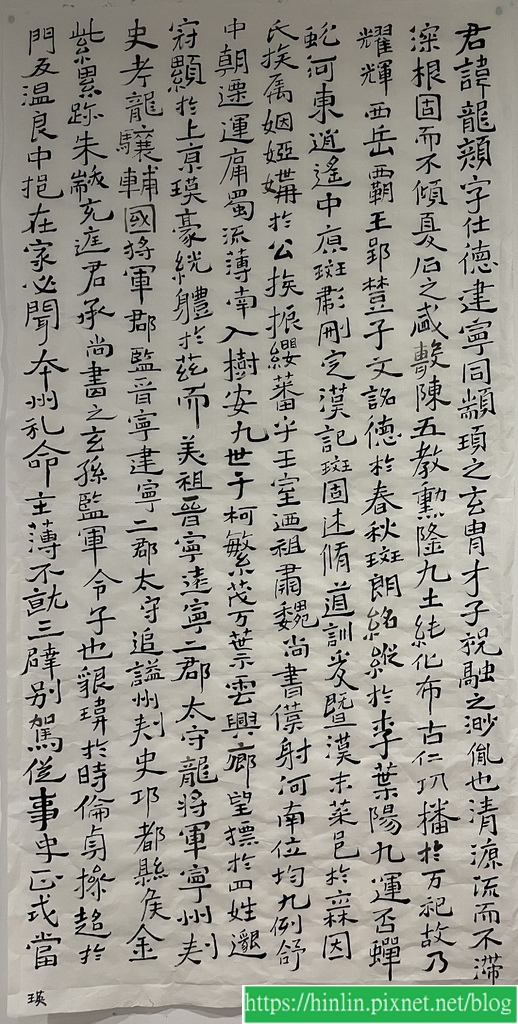 君諱龍顏字仕德建寧同顓頊之玄冑才子祝融之渺胤也清源流而不滯
深根固而不傾夏后之盛敷陳五教勳隆九土純化布古仁功播於万祀故乃
耀輝西岳霸王郢楚子文詺德於春秋班朗紹縱於季葉陽九運否蟬
蛻河東逍遙中原班彪刪定漢記班固述脩道訓爰暨漢末菜邑於因
氏族焉姻婭媾於公族振纓蕃乎王室迺祖肅魏尚書僕射河南位均九例舒
中朝遷運庸蜀流薄南入樹安九世千柯繁茂万葉雲興鄉望標於四姓邈
冠顯於上京瑛豪繼體於茲而美祖晉寧遠寧二郡太守龍將軍寧州刺
史考龍驤輔國將軍郡監晉寧建寧二郡太守追謚州刺史邛都縣侯金
紫累跡朱黻充庭君承尚書之玄孫監軍令子也貌瑋於時倫貞操超於
門友溫良中挹在家必聞本州礼命主薄不就三辟別駕從事史正式當
瑛
https://hinlin.pixnet.net/blog